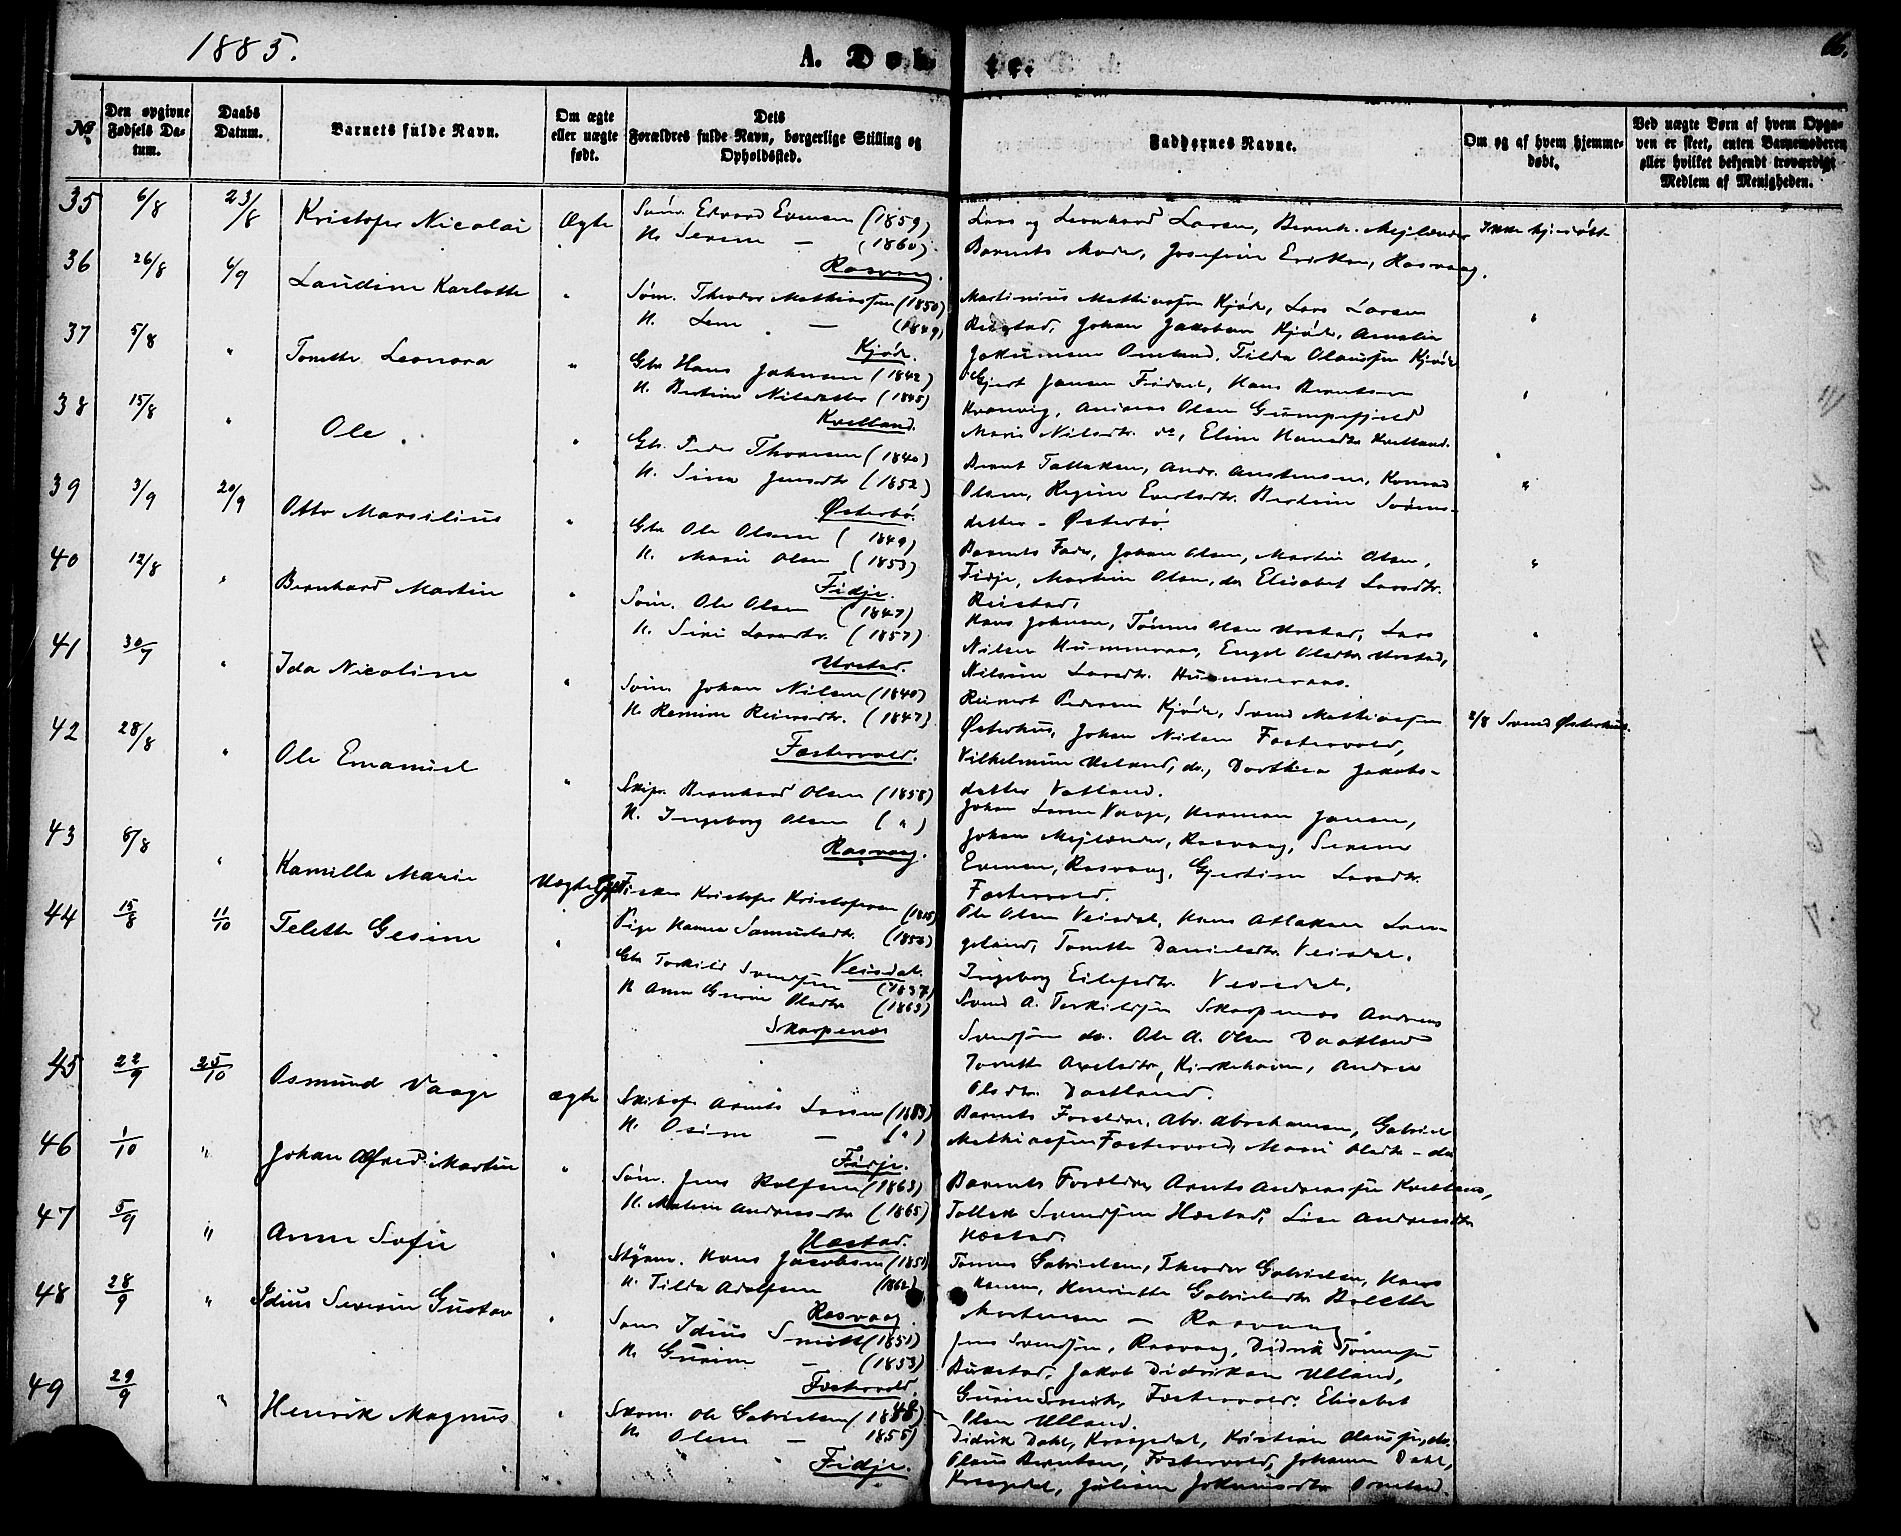 1885.
A. Døb te.
66.
№
Den opgivne Fødsels Da-tum.
Daabs Datum.
Barnets fulde Navn.
Om ægte eller uægte født.
Dets Forældres fulde Navn, borgerlige Stilling og Opholdssted.
Faddernes Navne.
Om og af hvem hjemme-døbt.
Ved uægte Børn af hvem Opga-ven er skeet, enten Barnemoderen eller hvilket bekjendt troværdigt Medlem af Menigheden.
35 6/8 23/8 Kristofer Nicolai Ægte
(1859)
H. Serene — (1860)
Rasvaag.
Lars og Leonhard Larsen, Bernh. Mejlænder
Barnets Moder, Josefine Eriksen, Rasvaag.
Ikke hj.døbt
36 26/8 6/9 Laudine Karlotte "
Søm. Theodor Mathiassen (1850)
H. Lene — (1849)
Kjøde.
Martinius Mathiassen Kjøde, Lars Larsen
Reistad, Johan Jakobsen Kjøde, Amalie
Omland, Tilda Olaussen Kjøde
37 5/8 " Tonette Leonora "
Gbr Hans Johnsen (1842)
H. Bertine Nilsdatter (1845)
Kvelland.
Gjert Jansen Fidsel, Hans Berntsen
Kvanvig, Andreas Olsen Gumpefjeld
Marie Nilsdtr. do, Eline Hansdtr Kvelland.
38 15/8 " Ole. "
Gbr. Peder Thorsen (1840)
H. Sina Jensdtr (1852)
Østerbø.
Bernt Tallaksen, Andr. Austensen, Konrad
Olsen, Regine Evertsdtr. Bertine Sørens-
datter – Østerbø.
39 3/9 20/9 Otto Marsilius "
Gbr Ole Olsen (1849)
H. Marie Olsen (1853)
Fidje.
Barnets Fader, Johan Olsen, Martin Olsen,
Fidje, Martine Olsen, do Elisabet Larsdtr.
Reistad.
40 12/8 " Bernhard Martin "
Søm. Ole Olsen (1847)
H. Siri Larsdtr. (1857)
Urstad.
Hans Johnsen, Tønnes Olsen Urstad, Lars
Nilsen Hummeraas, Engel Olsdtr Urstad,
Nilsine Larsdtr. Hummeraas.
41 30/7 " Ida Nicoline "
Søm. Johan Nilsen (1840)
H. Remine Reinertsdtr. (1847)
Fostervold.
Reinert Pedersen Kjøde, Svend Mathiassen
Østerhus, Johan Nilsen Fostervold,
Vilhelmine Urstad, do., Dorthea Jakobs-
datter Vatland.
2/8 Svend Østerhus.
42 28/8 " Ole Emanuel "
Skipr. Bernhard Olsen (1858)
H. Ingeborg Olsen (")
Rasvaag.
Johan Larsen Vaage, Herman Jansen,
Johan Mejlænder, Rasvaag, Serene
Rasvaag, Gjertine Larsdtr.
Fostervold.
43 6/8 " Kamilla Marie Uægte
Fisker Kristofer Kristofersen
Pige Hanna Samuelsdtr. (1850)
Veisdal.
Ole Olsen Veisdal, Hans Atlaksen Lan-
geland, Tonette Danielsdtr. Veisdal.
Ingeborg Eilefsdtr. Veisdal.
44 15/8 11/10 Telette Gesine "
Gbr Torkild Svendsen (1837)
H Anne Gurine Olsdtr (1863)
Skarpenes
Svend A. Torkildsen Skarpenes Andreas
Svendsen do. Ole A. Olsen Daatland
Tonette Axelsdtr, Kirkehavn, Andrea
Olsdtr. Daatland.
45 22/9 25/10 Osmund Vaage ægte
Arnts Larsen
H. Osine — (")
Fidje.
Barnets Foreldre, Abr. Abrahamsen, Gabriel
Mathiassen Fostervold, Marie Olsdtr – do
46 1/10 " Johan Alfred Martin "
Søm. Jens Rolfsen (1863)
H. Malene Andreasdtr (1865)
Hæstad.
Barnets Foreldre, Arnts Andreassen Kvelland,
Tallak Svendsen Hæstad, Lise Andreasdtr
Hæstad.
47 5/9 " Anne Sofie "
Styrm. Hans Jacobsen
H. Tilda Adolfsen (1862)
Rasvaag.
Tønnes Gabrielsen, Theodor Gabrielsen, Hans
Hansen, Henriette Gabrielsdtr Bolette
Mortensen — Rasvaag.
48 28/9 " Idius Severin Gustav "
Søm Idius Smith (1851)
H. Gurine — (1853)
Fostervold.
Jens Svendsen, Rasvaag, Didrik Tønnesen
Jakob Didriksen Ulland,
Gurine Smith, Fostervold. Elisabet
Olsen Ulland.
49 29/9 " Henrik Magnus "
Ole Gabrielsen (1848)
H. Olene — 1855)
Fidje.
Didrik Dahl, Kragedal, Kristian Olaussen, do.
Olaus Berntsen, Fostervold, Johanne Dahl,
Kragedal, Juliane Omland.